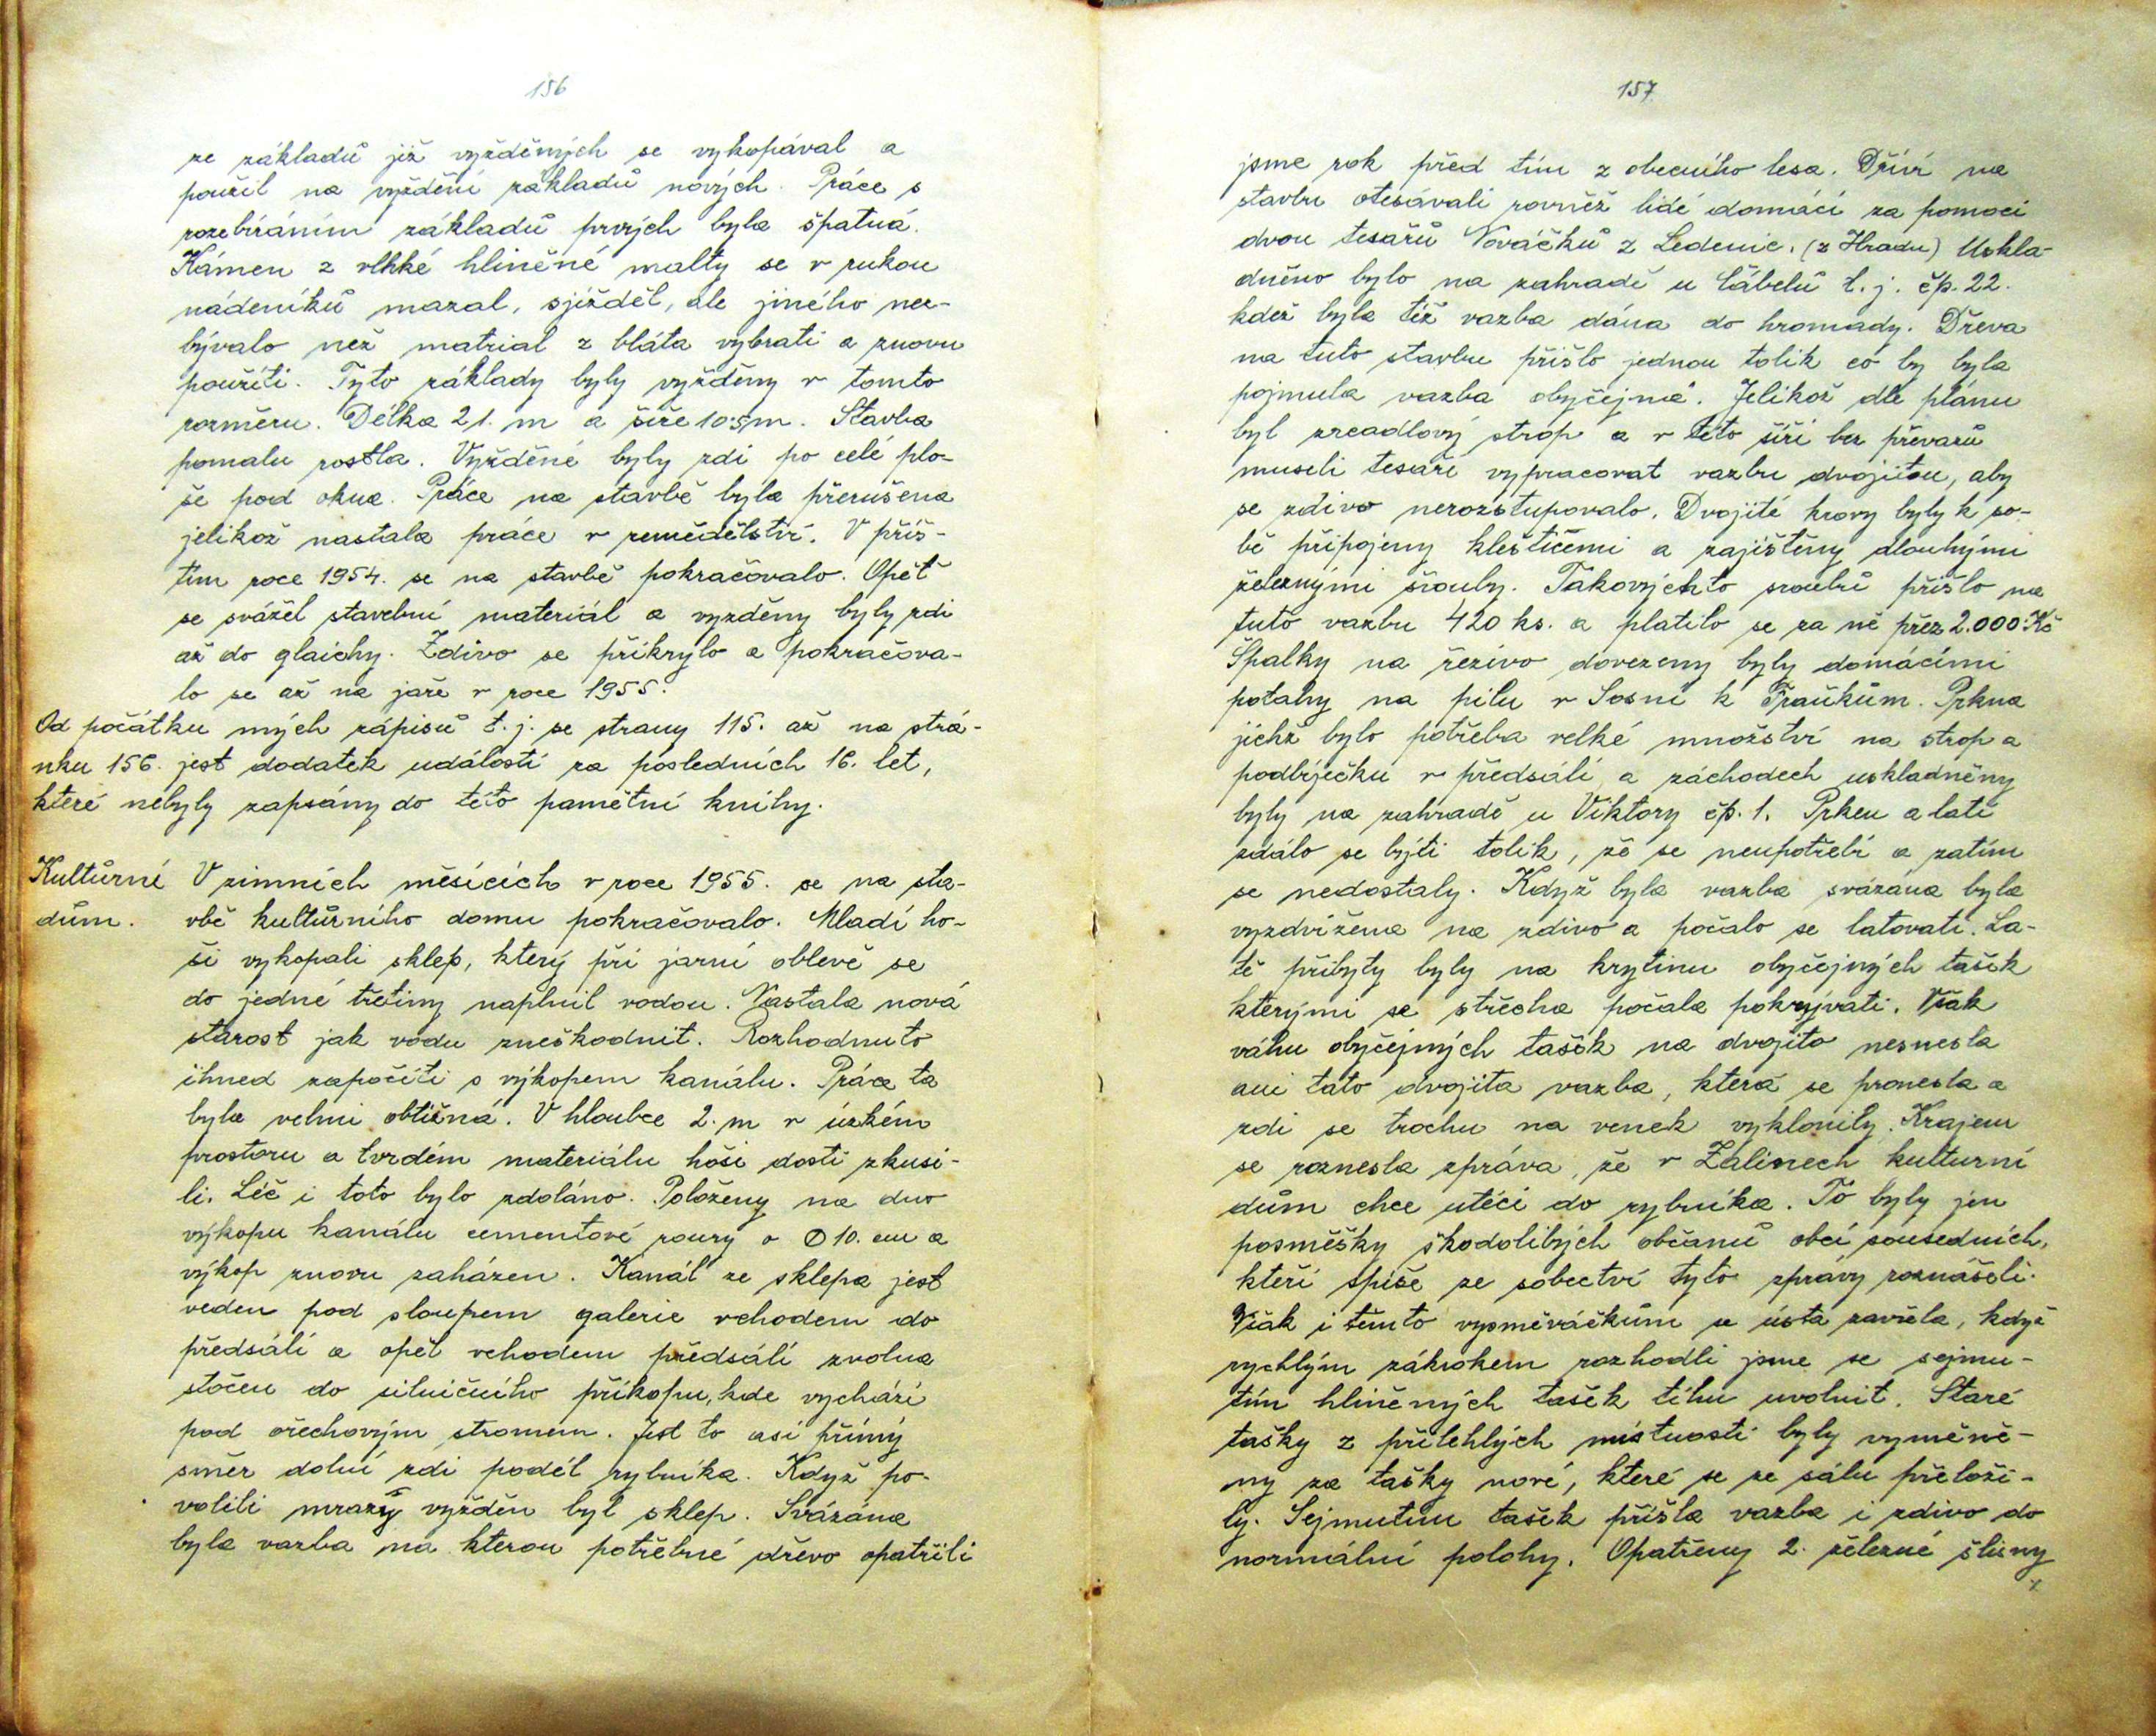 156
ze základů již vyžděných se vykopával a
použil na vyždění základů nových. Práce s
rozebíráním základů prvých byla špatná.
Kámen z vlhké hliněné malty se v rukou
nádeníků mazal, sjížděl, ale jiného nez-
bývalo než matrial z bláta vybrati a znovu
použíti. Tyto základy byly vyžděny v tomto
rozměru. Délka 21. m a šíře 10·5m. Stavba
pomalu rostla. Vyžděné byly zdi po celé plo-
še pod okna. Práce na stavbě byla přerušena
jelikož nastala práce v zemědělství. V příš-
tím roce 1954. se na stavbě pokračovalo. Opět
se svážel stavební materiál a vyzděny byly zdi
až do glaichy. Zdivo se přikrylo a pokračova-
lo se až na jaře v roce 1955.
Od počátku mých zápisů t.j. se strany 115. až na strá-
nku 156. jest dodatek událostí za posledních 16. let,
které nebyly zapsány do této pamětní knihy.
Kultůrní V zimních měsících v roce 1955. se na sta-
dům. vbě kultůrního domu pokračovalo. Mladí ho-
ši vykopali sklep, který při jarní oblevě se
do jedné třetiny naplnil vodou. Nastala nová
starost jak vodu zneškodnit. Rozhodnuto
ihned započíti s výkopem kanálu. Práce ta
byla velmi obtížná. V hloubce 2. m v úzkém
prostoru a tvrdém materiálu hoši dosti zkusi-
li. Léč i toto bylo zdoláno. Položeny na dno
výkopu kanálu cementové roury o ∅ 10. cm a
výkop znovu zaházen. Kanál ze sklepa jest
veden pod sloupem galerie vchodem do
předsálí a opět vchodem předsálí zvolna
stočen do silničního příkopu, kde vychází
pod ořechovým stromem. Jest to asi přímý
směr dolní zdi podél rybníka. Když po-
volili mrazy vyžděn byl sklep. Svázána
byla vazba na kterou potřebné dřevo opatřili
157
jsme rok před tím z obecního lesa. Dříví na
stavbu otesávali rovněž lidé domácí za pomoci
dvou tesařů Nováčků z Ledenic. (z Hradu) Uskla-
dněno bylo na zahradě u Cábelů t.j. čp. 22.
kdež byla též vazba dána do hromady. Dřeva
na tuto stavbu přišlo jednou tolik co by byla
pojmula vazba obyčejná. Jelikož dle plánu
byl zrcadlový strop a v této šíři bez převazů
museli tesaři vypracovat vazbu dvojitou, aby
se zdivo nerozstupovalo. Dvojité krovy byly k so-
bě připojeny kleštičemi a zajištěny dlouhými
železnými šrouby. Takovýchto sroubů přišlo na
tuto vazbu 420 ks. a platilo se za ně přez 2.000 Kč
Špalky na řezivo dovezeny byly domácími
potahy na pilu v Sosni k Traůkům. Prkna
jichž bylo potřeba velké množství na strop a
podbíječku v předsálí a záchodech uskladněny
byly na zahradě u Viktory čp. 1. Prken a latí
zdálo se býti tolik, že se neupotřebí a zatím
se nedostaly. Když byla vazba svázána byla
vyzdvižena na zdivo a počalo se latovati. La-
tě přibyty byly na krytinu obyčejných tašek
kterými se střecha počala pokrývati. Však
váhu obyčejných tašek na dvojito nesnesla
ani tato dvojita vazba, která se pronesla a
zdi se trochu na venek vyklonily. Krajem
se roznesla zpráva, že v Zalinech kulturní
dům chce utéci do rybníka. To byly jen
posměšky škodolibých občanů obcí sousedních,
kteří spíše ze sobectví tyto zprávy roznášeli.
Však i těmto vysměváčkům se ústa zavřela, když
rychlým zákrokem rozhodli jsme se sejmu-
tím hliněných tašek tíhu uvolnit. Staré
tašky z přilehlých místností byly vyměně-
ny za tašky nové, které se ze sálu přeloži-
ly. Sejmutím tašek přišla vazba i zdivo do
normální polohy. Opatřeny 2. železné šliny